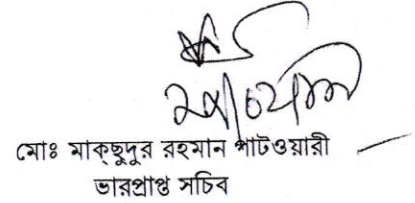 মোঃ মাক্ছুদুর রহমান পাটওয়ারী
ভারপ্রাপ্ত সচিব